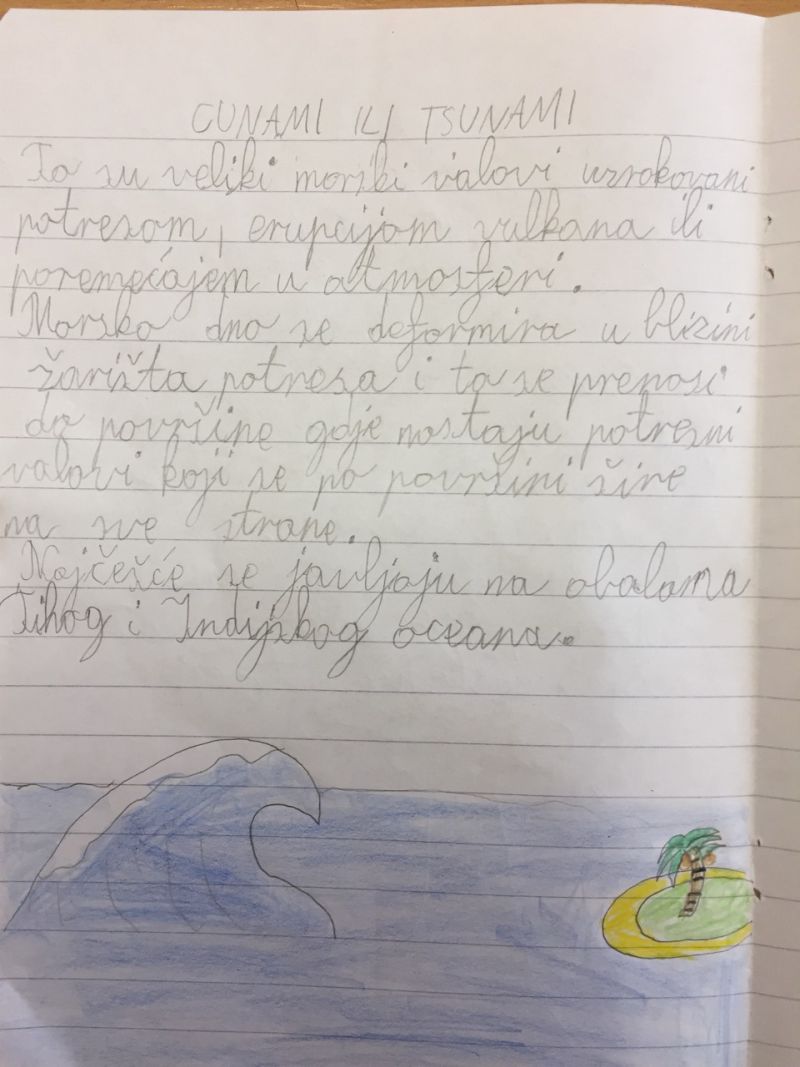 CUNAMI ILI TSUNAMI
To su veliki morski valovi uzrokovani
potresom, erupcijom vulkana ili
poremećajem u atmosferi.
Morsko dno se deformira u blizini
žarišta potresa i to se prenosi
do površine gdje nastaju potresni
valovi koji se po površini šire
na sve strane.
Najčešće se javljaju na obalama
Tihog i Indijskog oceana.